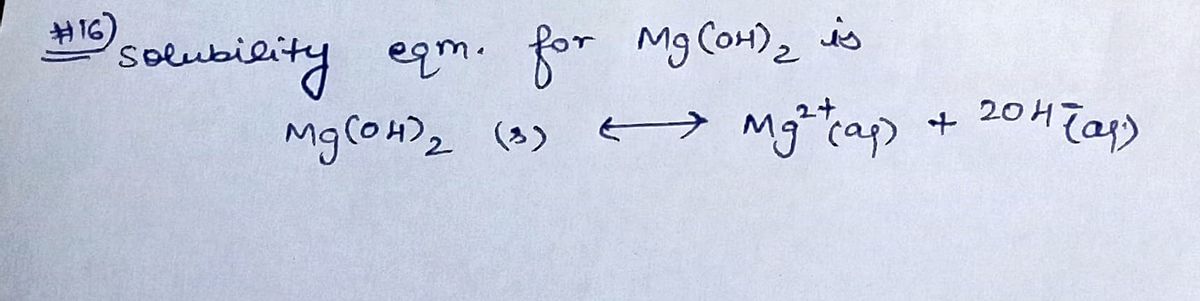 #16) solubility eqm. for Mg(OH)₂ is
Mg(OH)₂ (s) ⟷ Mg²⁺(aq) + 2OH⁻(aq)